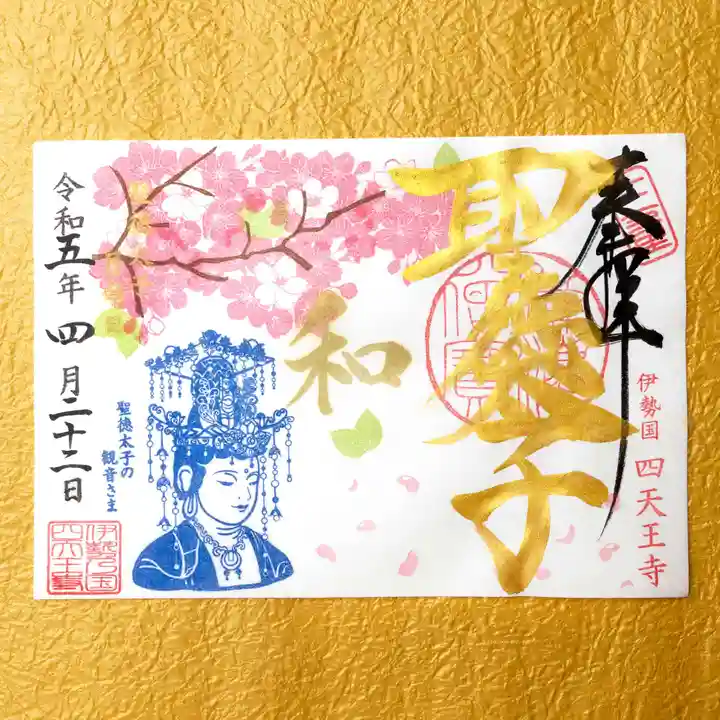 奉拝
伊勢国 四天王寺
聖徳太子
和
聖徳太子の
観音さま
令和五年四月二十二日
伊勢国
四天王寺